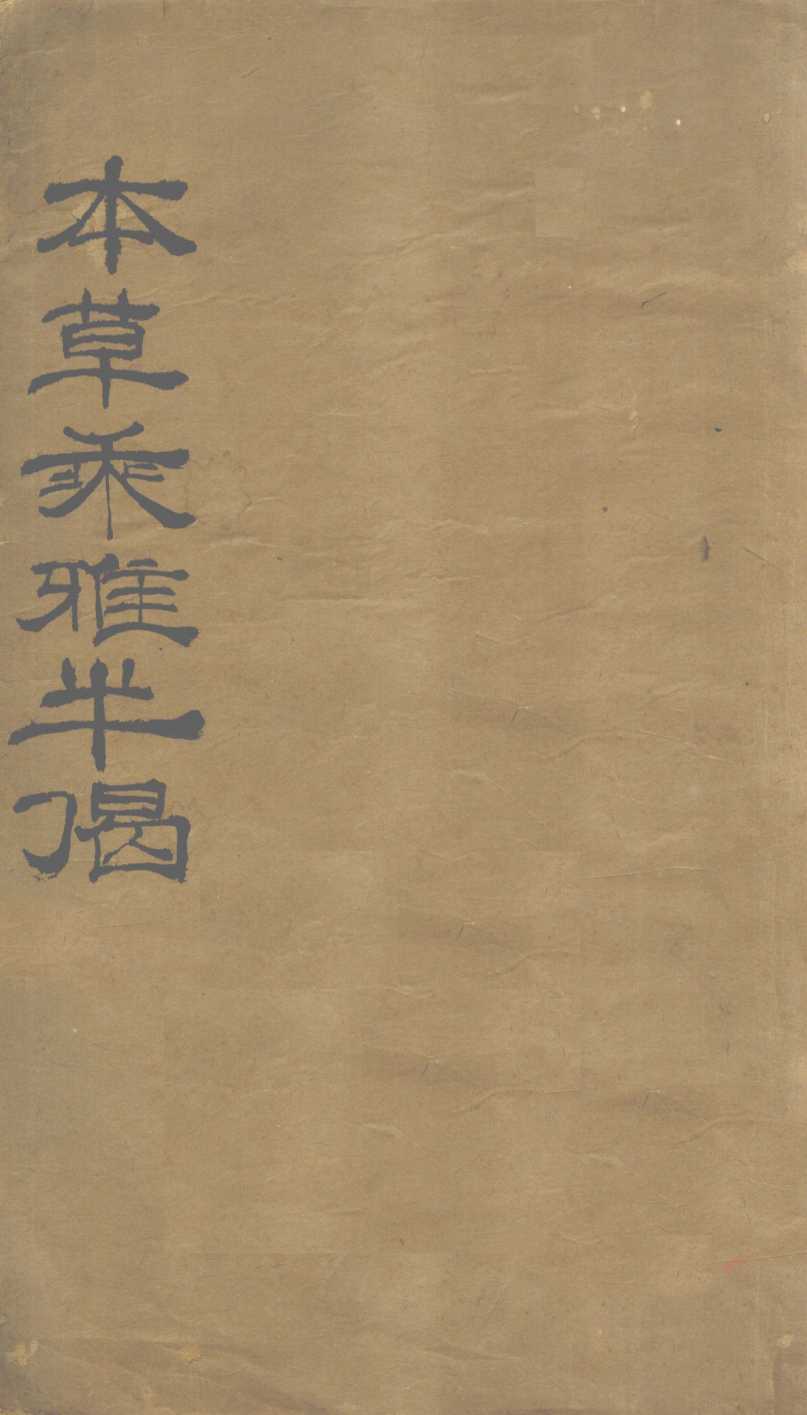 本草乘雅半偈